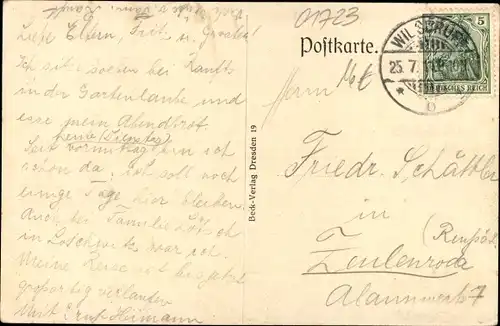 noch
Liebe Eltern, Frit. u. Groshel
Ich sitze soeben bei Raufts
in der Gartenlaube und
esse mein Abendbrot.
heute (Dienstag)
Seit vormittag bin ich
schon da, ich soll noch
einige Tage hier bleiben.
Auch bei Familie Lösch
in Loschwitz war ich.
Meine Reise ist bis jetzt
großartig verlaufen
Mit Gruß Heimann
Beck-Verlag Dresden 19
01723
Postkarte.
WILSDRUFF
25.7.
5
DEUTSCHES REICH
Herrn
Friedr. Schättler
in
(Reuß ä. L.)
Zeulenroda
Alaunwerk 7